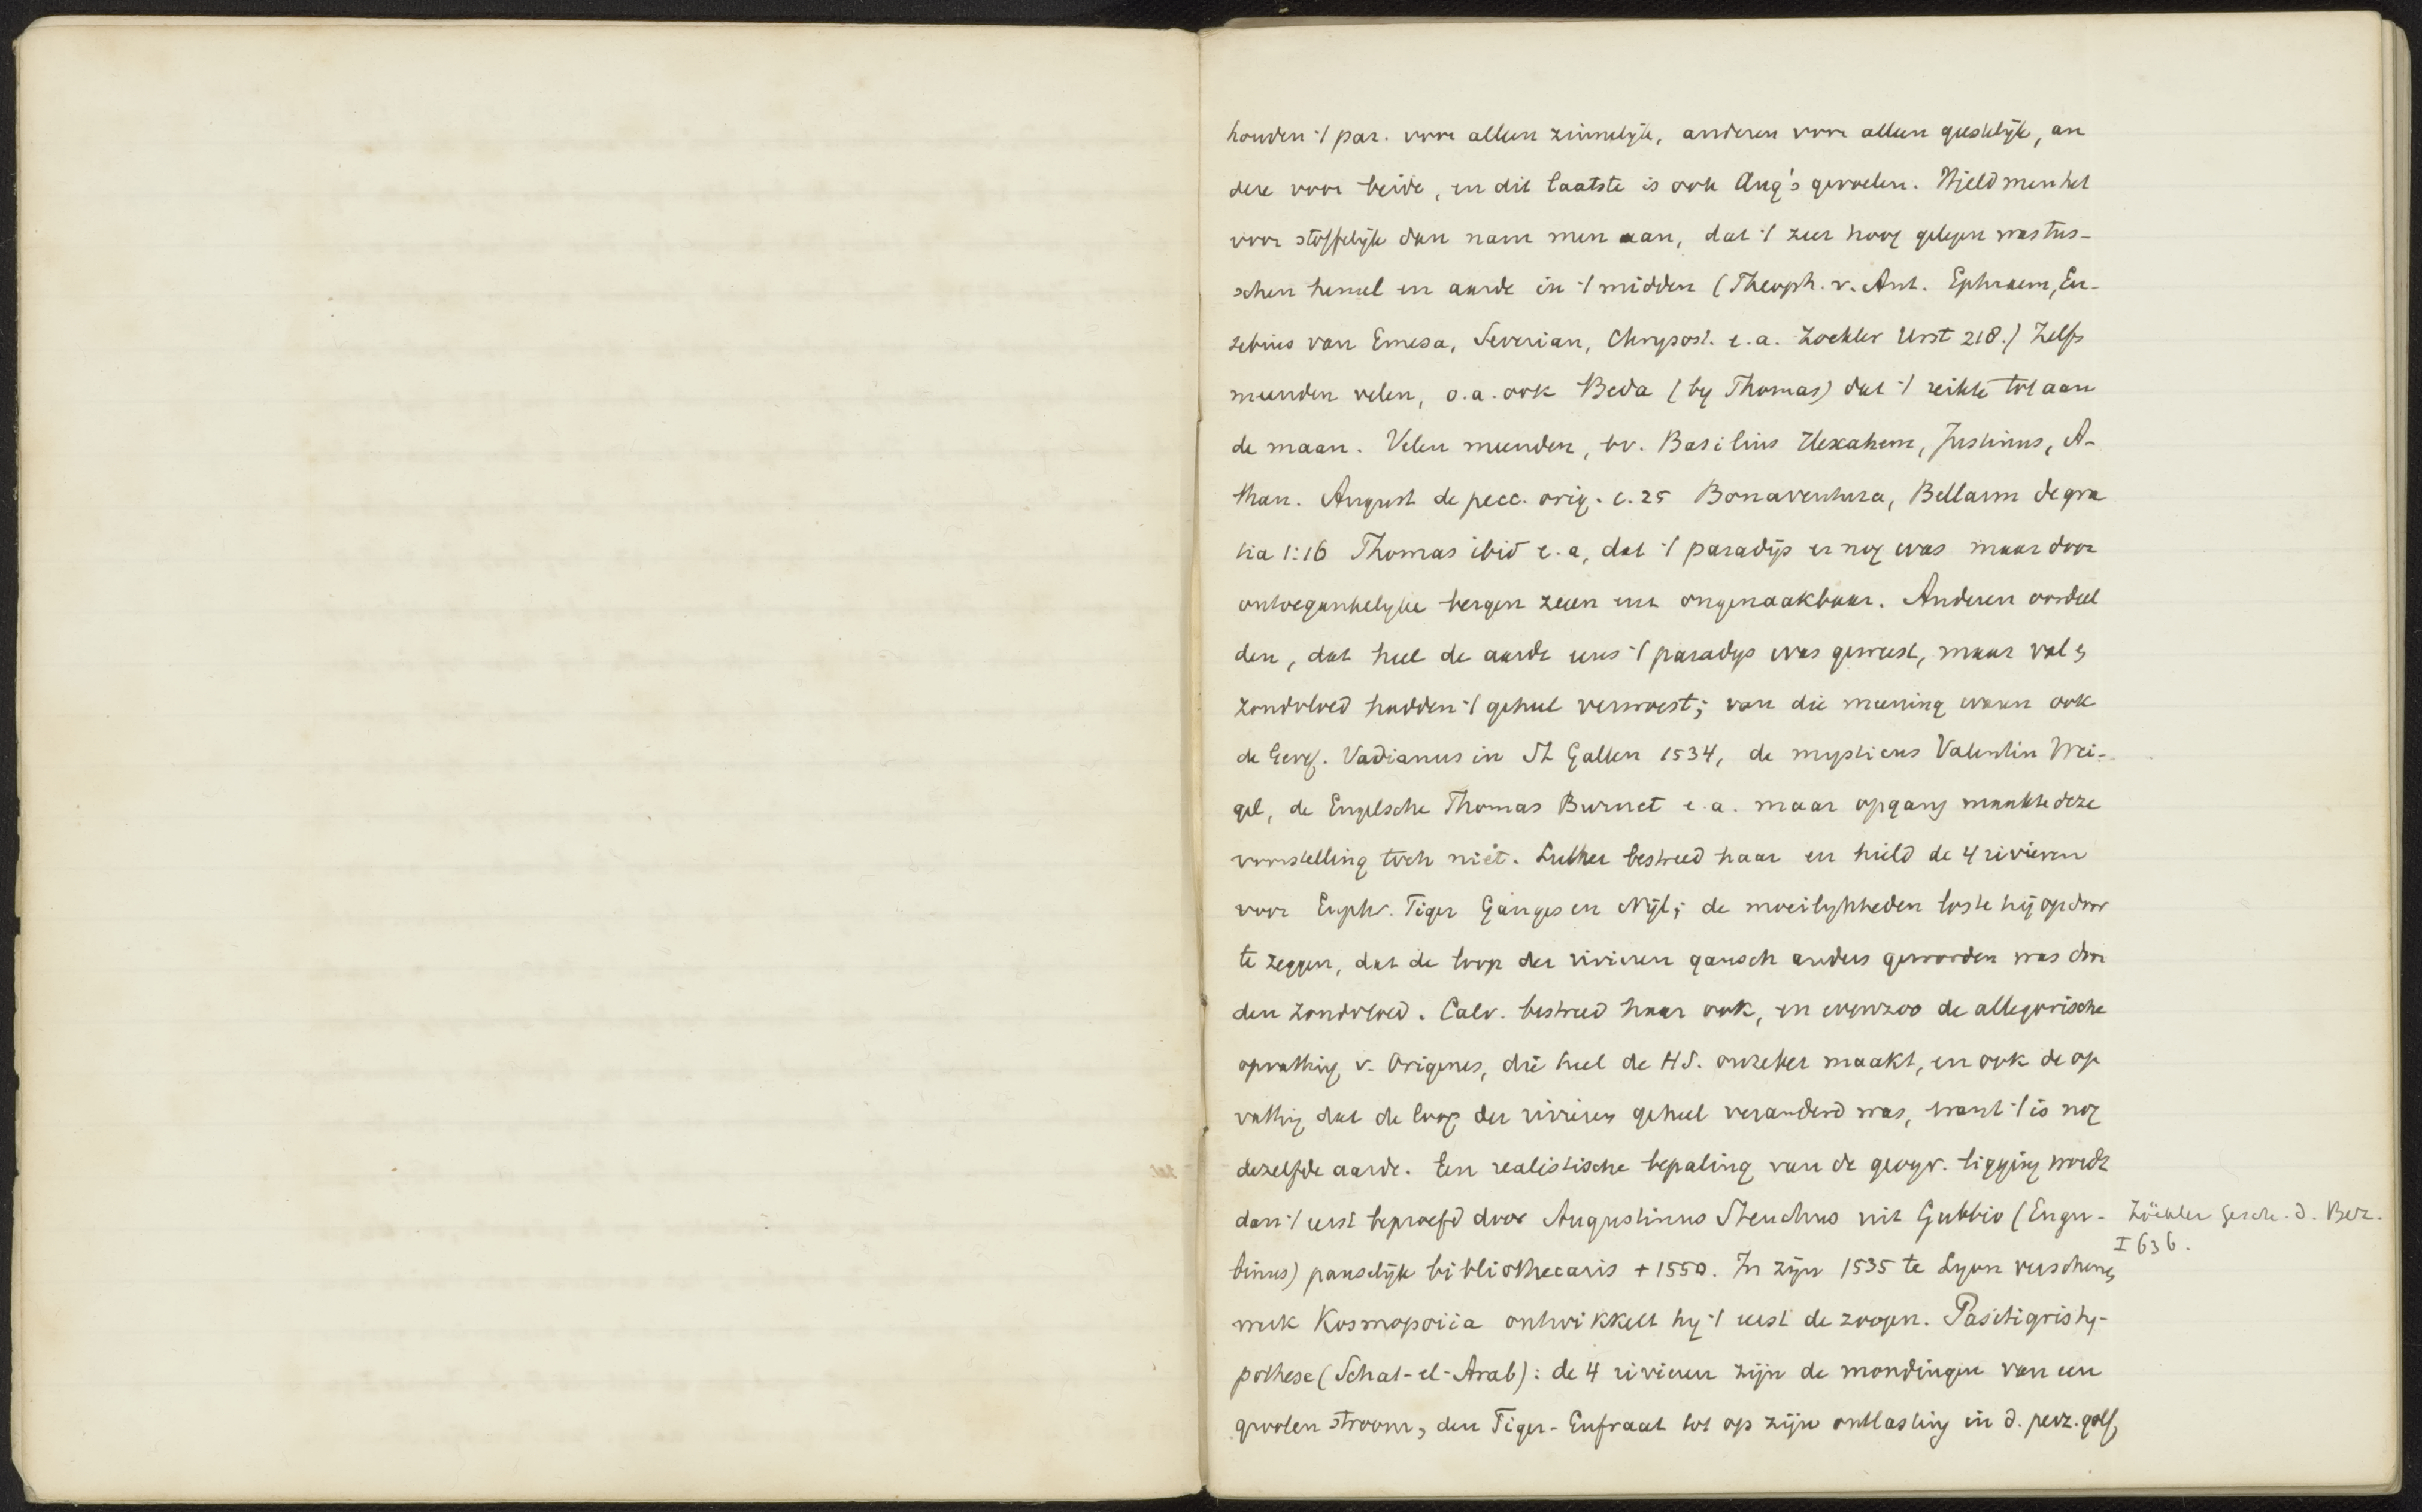 houden 't par. voor alleen zinnelijk, anderen voor alleen geestelijk, an
dere voor beide, en dit laatste is ook Aug's gevoelen. Hield men het
voor stoffelijk dan nam men aan, dat 't zeer hoog gelegen was tus-
schen hemel en aarde in 't midden (Theoph. v. Ant. Ephraem, Eu-
sebius van Emesa, Severian, Chrysost. e.a. Zoekler Urst 218.) Zelfs
meenden velen, o.a. ook Beda (by Thomas) dat 't reikte tot aan
de maan. Velen meenden, bv. Basilius Hexahem, Justinus, A-
than. August de pecc. orig. c. 25 Bonaventura, Bellarm de gra
tia 1:16 Thomas ibid e.a, dat 't paradijs er nog was maar door
ontoegankelyke bergen zeeen enz ongenaakbaar. Anderen oordeel
den, dat heel de aarde eens 't paradys was geweest, maar val en
zondvloed hadden 't geheel verwoest; van die meening waren ook
de Geref. Vadianus in St Gallen 1534, de mysticus Valentin Wei-
gel, de Engelsche Thomas Burnet e.a. maar opgang maakte deze
voorstelling toch niet. Luther bestreed haar en hield de 4 rivieren
voor Euphr. Tiger Ganges en Nijl; de moeilykheden loste hij op door
te zeggen, dat de loop der rivieren gansch anders geworden was door
den zondvloed. Calv. bestreed haar ook, en evenzoo de allegorische
opvatting v. Origenes, die heel de HS. onzeker maakt, en ook de op
vatting dat de loop der rivieren geheel veranderd was, want 't is nog
dezelfde aarde. Een realistische bepaling van de geogr. ligging wordt
dan 't eerst beproefd door Augustinus Steuchus uit Gubbio (Eugu-
binus) pauselijk bibliothecaris + 1550. In zijn 1535 te Lyon verschenen
werk Kosmopoiia ontwikkelt hy 't eerst de zoogen. Pasitigrishy-
pothese (Schat-el-Arab): de 4 rivieren zijn de mondingen van een
grooten stroom, den Tiger-Eufraat tot op zijn ontlasting in d. perz. golf,
Zöckler Gesch. d. Bez.
I 636.